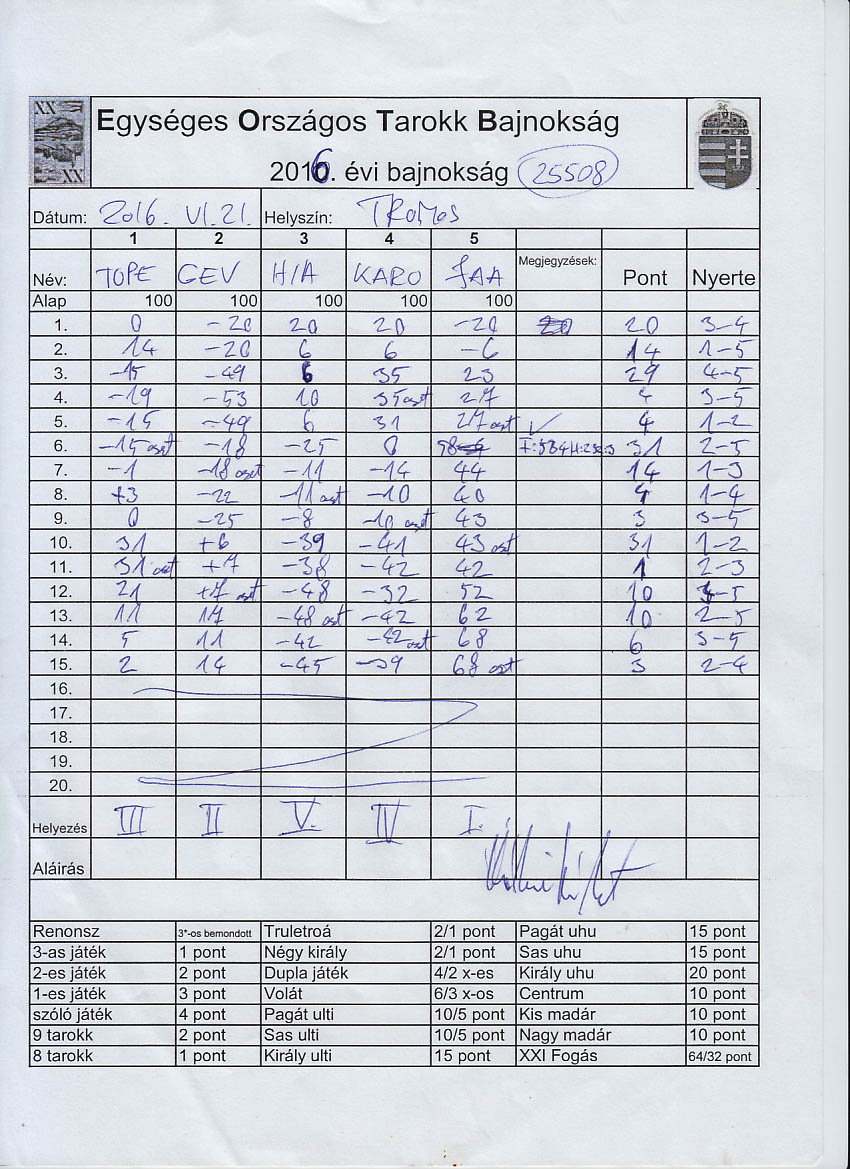 XX
XX
Egységes Országos Tarokk Bajnokság
2016. évi bajnokság 25508
Dátum: 2016. VI. 21. Helyszín: TROMOS
1 2 3 4 5
Név: TOPE GEV H/A KARO JAA Megjegyzések: Pont Nyerte
Alap 100 100 100 100 100
1. 0 -20 20 20 -20 20 3-4
2. 14 -20 6 6 -6 14 1-5
3. -15 -49 6 35 23 29 4-5
4. -19 -53 10 35 oszt 27 4 3-5
5. -15 -49 6 31 27 oszt ✓ 4 1-2
6. -15 oszt -18 -25 0 58 31 2-5
7. -1 -18 oszt -11 -14 44 14 1-3
8. +3 -22 -11 oszt -10 40 4 1-4
9. 0 -25 -8 -10 oszt 43 3 3-5
10. 31 +6 -39 -41 43 oszt 31 1-2
11. 31 oszt +7 -38 -42 42 1 2-3
12. 21 +7 oszt -48 -32 52 10 4-5
13. 11 17 -48 oszt -42 62 10 2-5
14. 5 11 -42 -42 oszt 68 6 3-5
15. 2 14 -45 -39 68 oszt 3 2-4
16.
17.
18.
19.
20.
Helyezés III II V. IV I.
Aláírás
Renonsz 3*-os bemondott Truletroá 2/1 pont Pagát uhu 15 pont
3-as játék 1 pont Négy király 2/1 pont Sas uhu 15 pont
2-es játék 2 pont Dupla játék 4/2 x-es Király uhu 20 pont
1-es játék 3 pont Volát 6/3 x-os Centrum 10 pont
szóló játék 4 pont Pagát ulti 10/5 pont Kis madár 10 pont
9 tarokk 2 pont Sas ulti 10/5 pont Nagy madár 10 pont
8 tarokk 1 pont Király ulti 15 pont XXI Fogás 64/32 pont